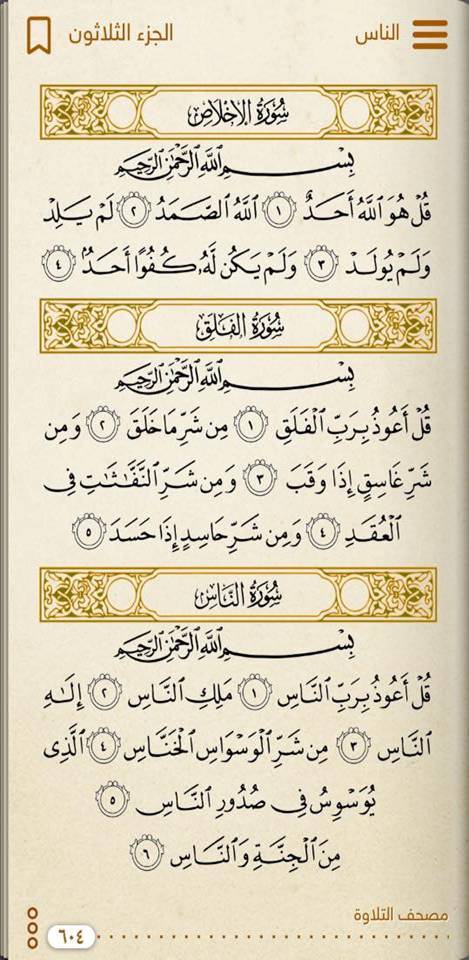 الناس الجزء الثلاثون
سُورَةُ الإِخْلَاصِ
بِسْمِ اللَّهِ الرَّحْمَٰنِ الرَّحِيمِ
قُلْ هُوَ اللَّهُ أَحَدٌ ١ اللَّهُ الصَّمَدُ ٢ لَمْ يَلِدْ
وَلَمْ يُولَدْ ٣ وَلَمْ يَكُن لَّهُۥ كُفُوًا أَحَدٌۢ ٤
سُورَةُ الفَلَقِ
بِسْمِ اللَّهِ الرَّحْمَٰنِ الرَّحِيمِ
قُلْ أَعُوذُ بِرَبِّ الْفَلَقِ ١ مِن شَرِّ مَا خَلَقَ ٢ وَمِن
شَرِّ غَاسِقٍ إِذَا وَقَبَ ٣ وَمِن شَرِّ النَّفَّٰثَٰتِ فِي
الْعُقَدِ ٤ وَمِن شَرِّ حَاسِدٍ إِذَا حَسَدَ ٥
سُورَةُ النَّاسِ
بِسْمِ اللَّهِ الرَّحْمَٰنِ الرَّحِيمِ
قُلْ أَعُوذُ بِرَبِّ النَّاسِ ١ مَلِكِ النَّاسِ ٢ إِلَٰهِ
النَّاسِ ٣ مِن شَرِّ الْوَسْوَاسِ الْخَنَّاسِ ٤ الَّذِي
يُوَسْوِسُ فِي صُدُورِ النَّاسِ ٥
مِنَ الْجِنَّةِ وَالنَّاسِ ٦
مصحف التلاوة
٦٠٤